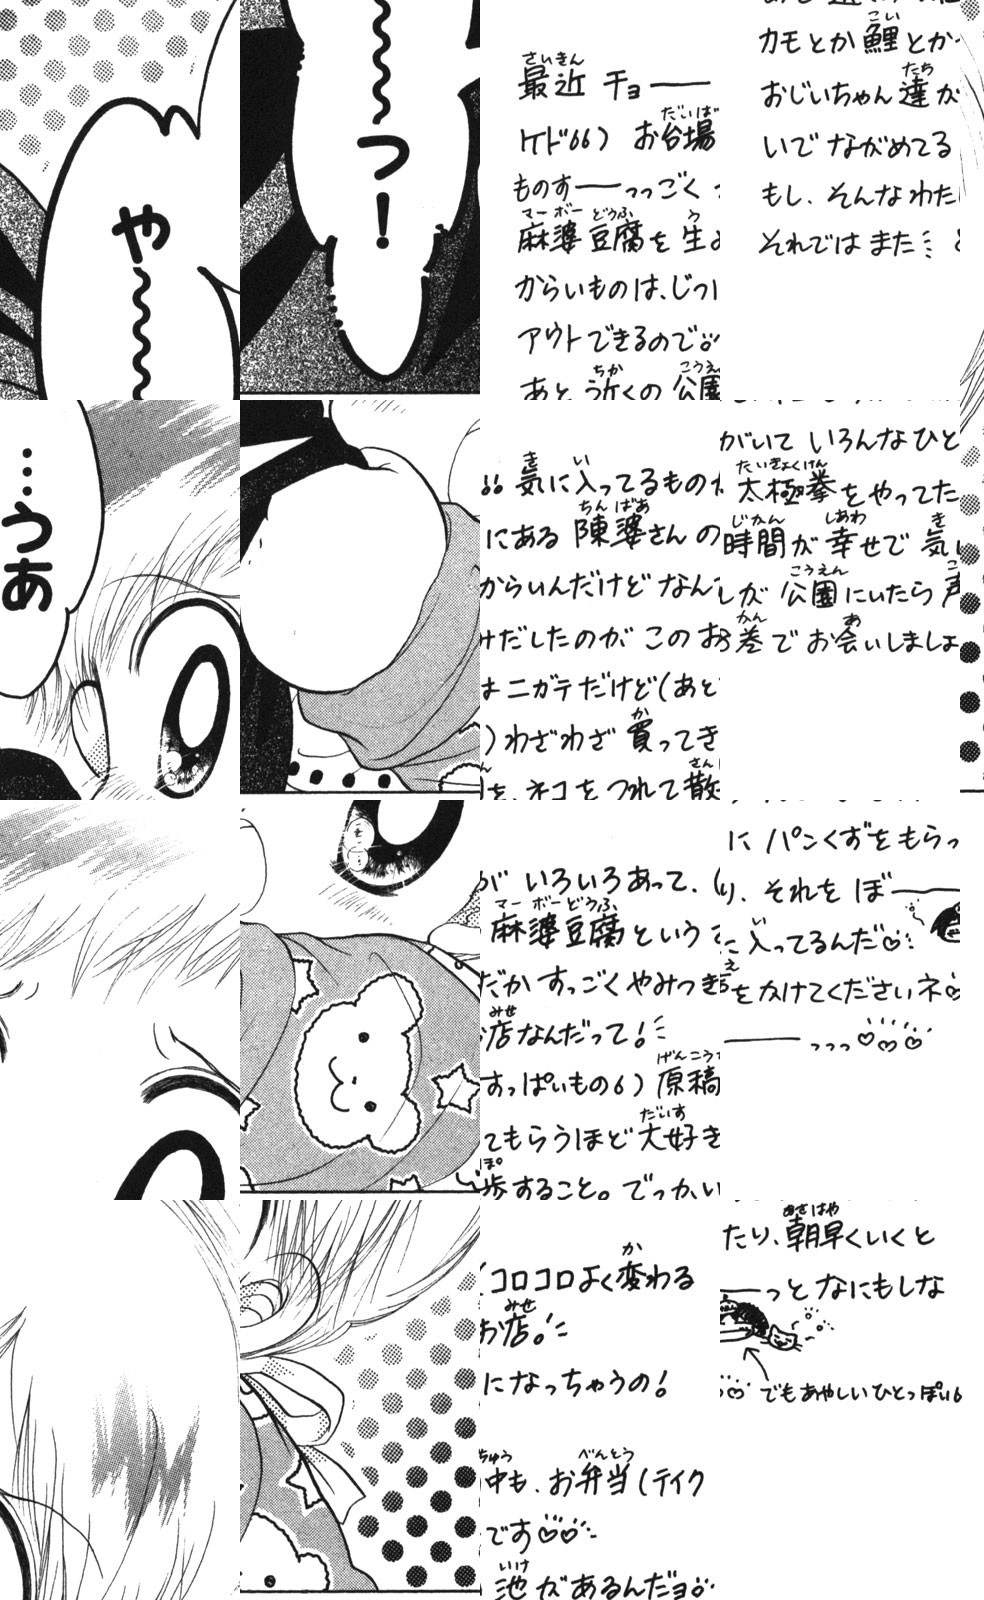 や〜〜
〜〜っ！
…うあ
最近 チョ——
ケド66) お台場
ものす——っっごく
麻婆豆腐を生み
からいものは、じつは
アウトできるので
あと、近くの公園
カモとか鯉とか
おじいちゃん達が
いで ながめてる
もし、そんなわたし
それではまた
気に入ってるものが
にある陳婆さんの
からいんだけど なんで
みだしたのが このお
はニガテだけど(あと
)わざわざ 買ってき
を、ネコをつれて散
がいて いろんなひと
太極拳をやってた
時間が幸せで 気に
しが 公園にいたら声
巻でお会いしましょ
が いろいろあって、(
麻婆豆腐という
だかすっごくやみつき
店なんだって！
すっぱいもの6) 原稿
てもらうほど大好き
歩すること。でっかい
に パンくずをもらっ
り、それをぼ——
に入ってるんだ♡
をかけてくださいネ♡
——っっっ♡♡♡
コロコロよく変わる
お店。
になっちゃうの！
中も、お弁当(テイク
です♡♡
池があるんだヨ
たり、朝早くいくと
——っとなにもしな
♡でもあやしいひとっぽい6